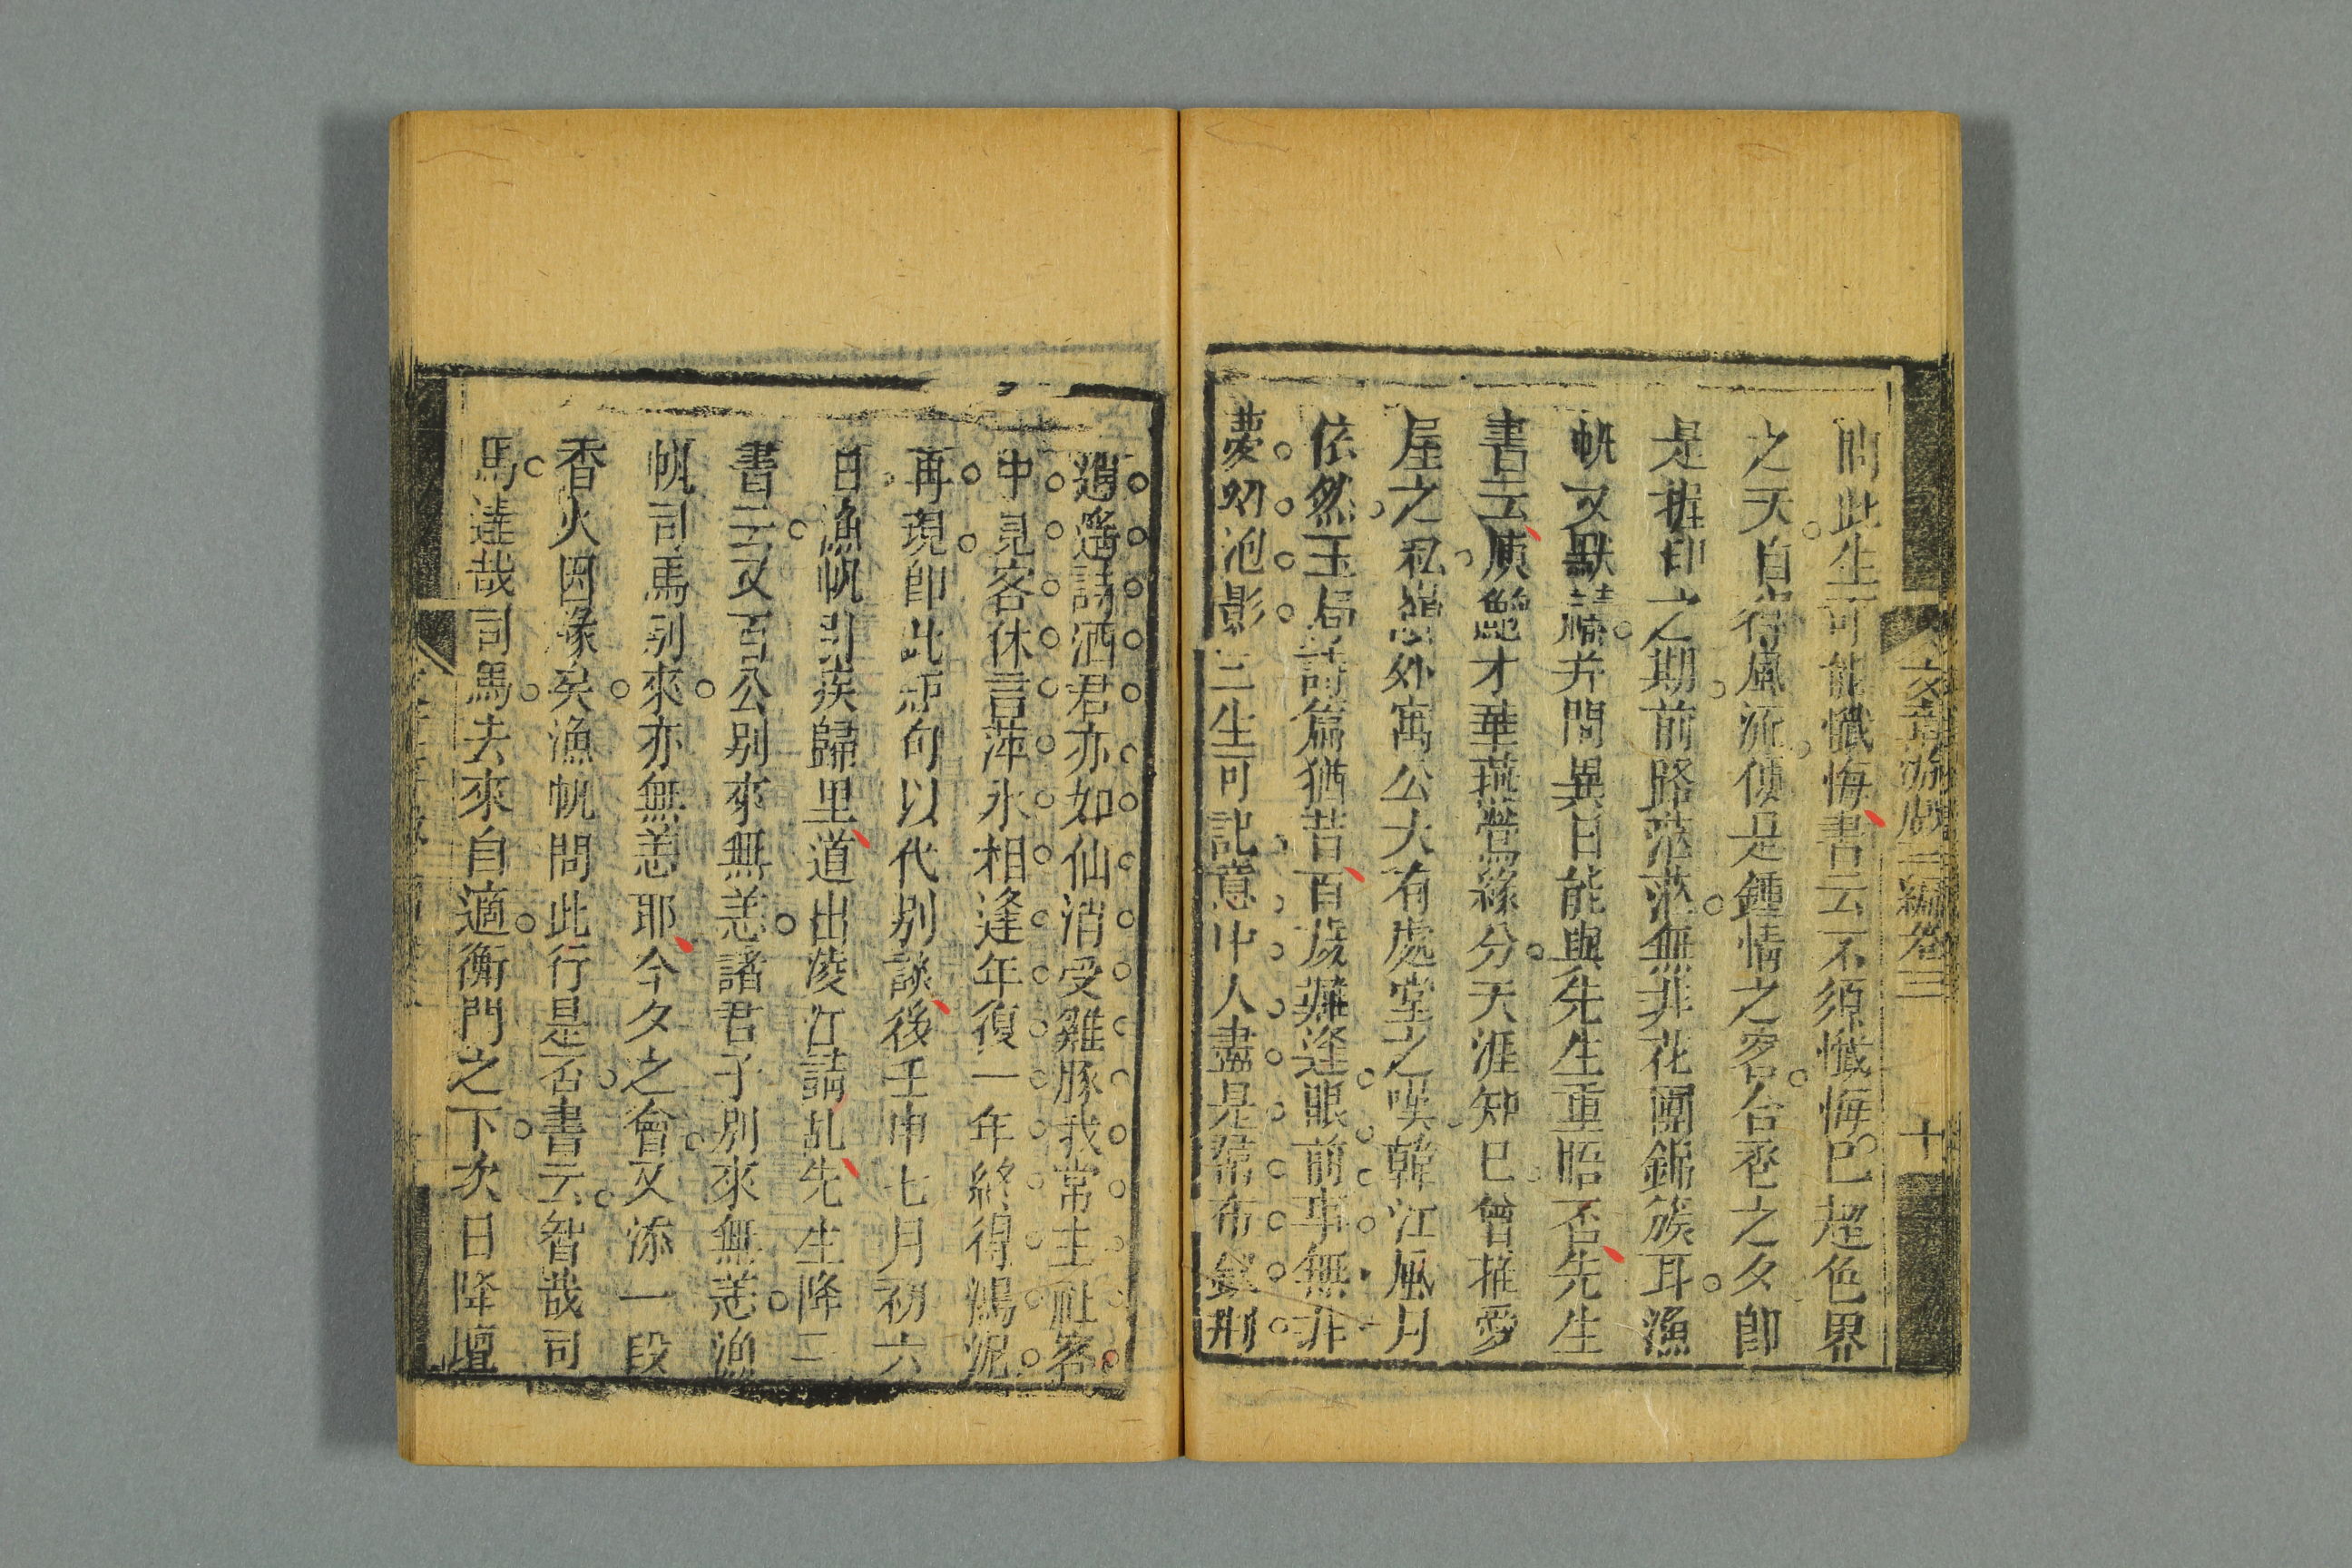 文章游戲三編卷三
十
問此生可能懺悔書云不須懺悔已超色界
之天自得風流便是鍾情之客合卺之夕即
是握印之期前路茫茫無非花團錦簇耳漁
帆又默請并問異日能與先生重晤否先生
書云廎艷才華燕鶯緣分天涯知已曾推愛
屋之私嶺外寓公大有處堂之嘆韓江風月
依然玉局詩篇猶昔百歲難逢眼前事無非
夢幻泡影三生可記意中人盡是荊布釵荊
逍遙詩酒君亦如仙消受雞豚我常主社客
中見客休言萍水相逢年復一年終得鴻泥
再現即此絕句以代別談後壬申七月初六
日漁帆引疾歸里道出凌江請乩先生降二
書云又百公別來無恙諸君子別來無恙漁
帆司馬別來亦無恙耶今夕之會又添一段
香火因緣矣漁帆問此行是否書云智哉司
馬達哉司馬去來自適衡門之下次日降壇